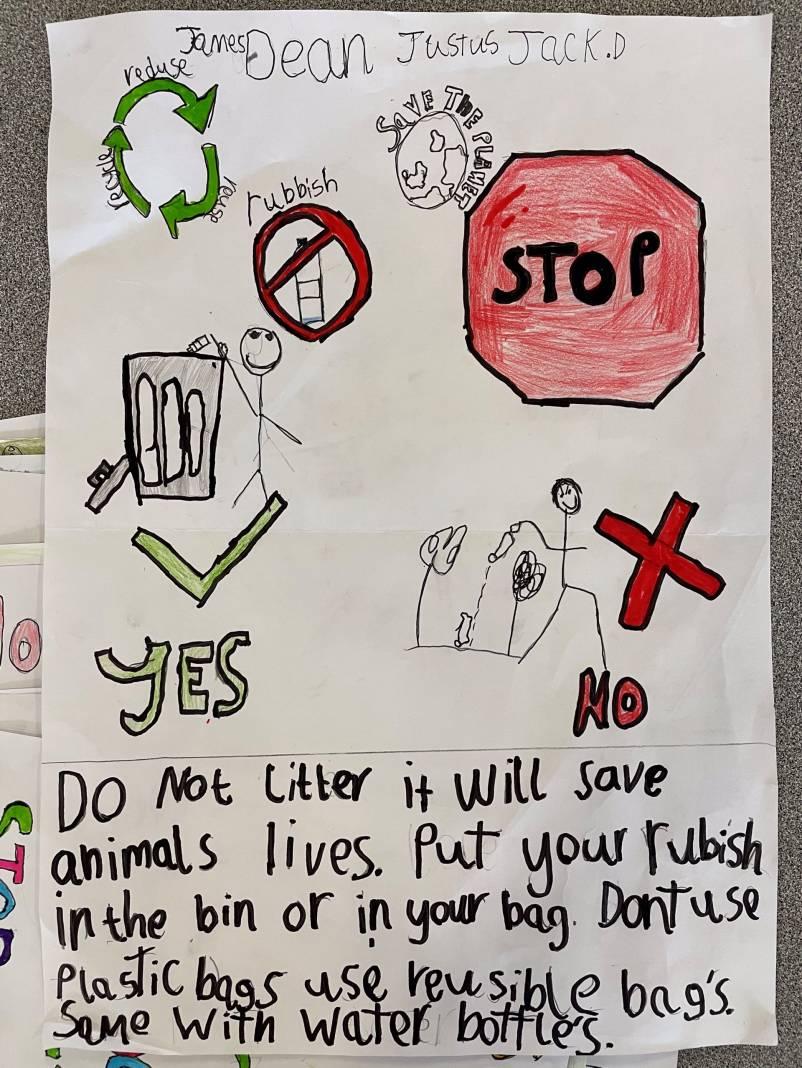 James Dean Justus Jack.D
reduse
recycle
reuse
SAVE THE PLANET
rubbish
STOP
YES
NO
DO Not Litter it will save
animals lives. Put your rubish
in the bin or in your bag. Dont use
Plastic bags use reusible bag's.
Same with water bottle's.
STOP